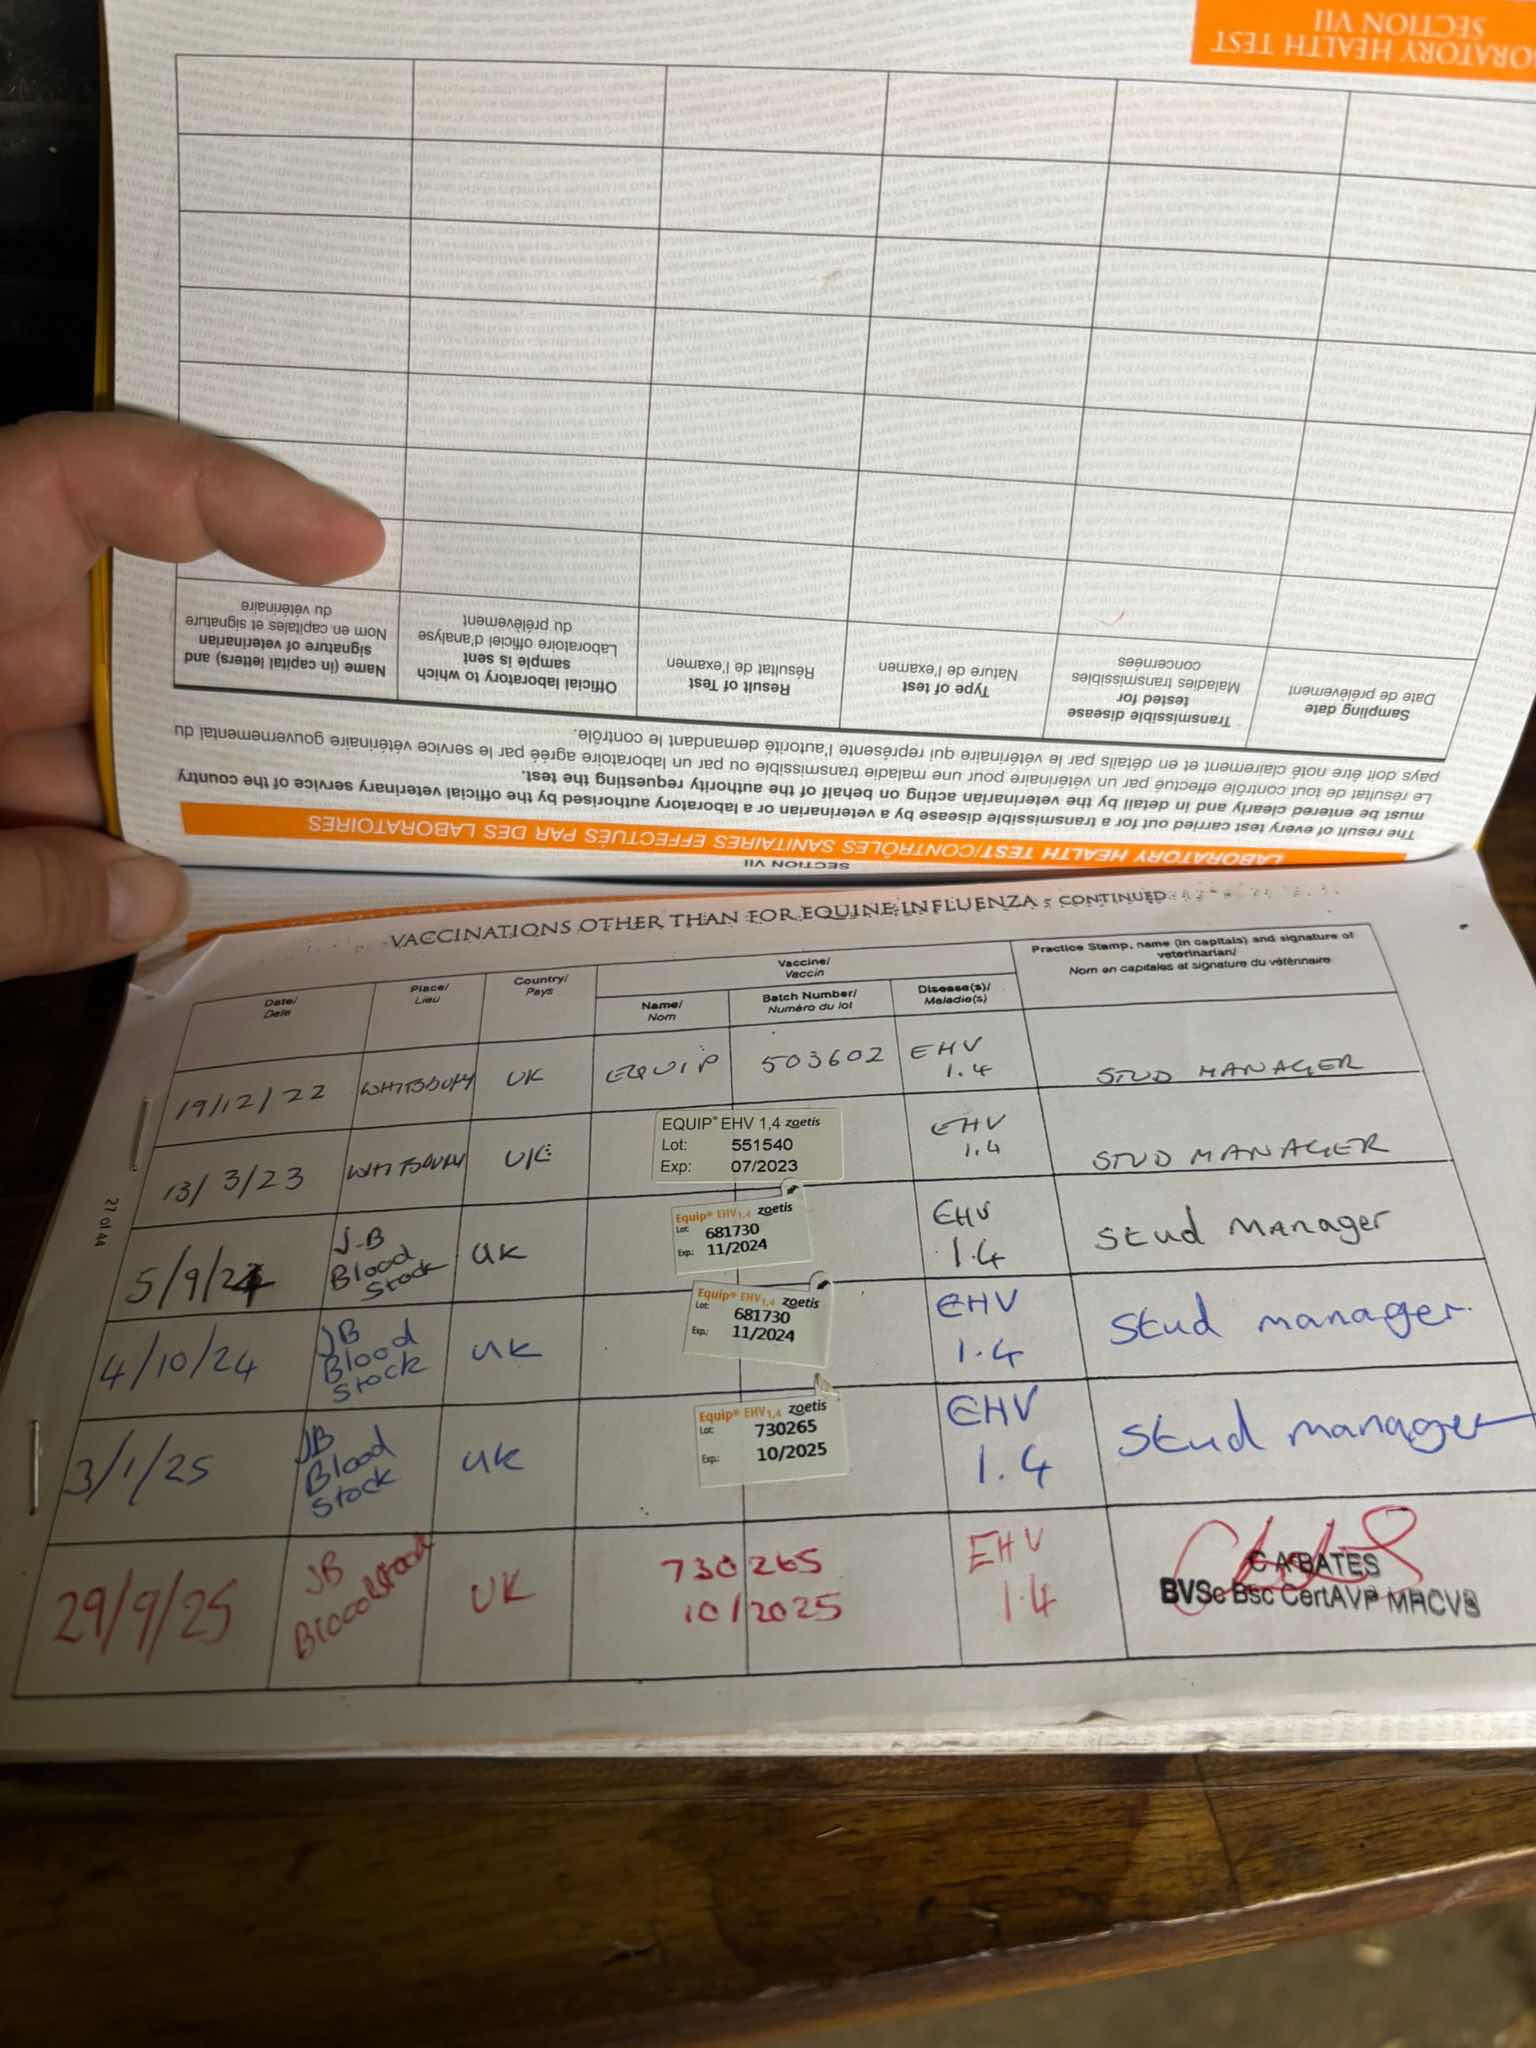 ORATORY HEALTH TEST
SECTION VII
SECTION VII
LABORATORY HEALTH TEST/CONTRÔLES SANITAIRES EFFECTUÉS PAR DES LABORATOIRES
The result of every test carried out for a transmissible disease by a veterinarian or a laboratory authorised by the official veterinary service of the country
must be entered clearly and in detail by the veterinarian acting on behalf of the authority requesting the test.
Le résultat de tout contrôle effectué par un vétérinaire pour une maladie transmissible ou par un laboratoire agréé par le service vétérinaire gouvernemental du
pays doit être noté clairement et en détails par le vétérinaire qui représente l'autorité demandant le contrôle.
Sampling date
Date de prélèvement
Transmissible disease
tested for
Maladies transmissibles
concernées
Type of test
Nature de l'examen
Result of Test
Résultat de l'examen
Official laboratory to which
sample is sent
Laboratoire officiel d'analyse
du prélèvement
Name (in capital letters) and
signature of veterinarian
Nom en capitales et signature
du vétérinaire
VACCINATIONS OTHER THAN FOR EQUINE INFLUENZA - CONTINUED
Date/
Date
Place/
Lieu
Country/
Pays
Vaccine/
Vaccin
Name/
Nom
Batch Number/
Numéro du lot
Disease(s)/
Maladie(s)
Practice Stamp, name (in capitals) and signature of
veterinarian/
Nom en capitales et signature du vétérinaire
19/12/22 WHITSBURY UK EQUIP 503602 EHV
1.4
STUD MANAGER
13/3/23 WHITSBURY UK
EQUIP® EHV 1,4 zoetis
Lot: 551540
Exp: 07/2023
EHV
1.4
STUD MANAGER
5/9/24
J-B
Blood
Stock
UK
Equip® EHV1,4 zoetis
Lot: 681730
Exp.: 11/2024
EHV
1.4
Stud Manager
4/10/24
JB
Blood
Stock
UK
Equip® EHV1,4 zoetis
Lot: 681730
Exp.: 11/2024
EHV
1.4
Stud manager
3/1/25
JB
Blood
Stock
UK
Equip® EHV1,4 zoetis
Lot: 730265
Exp.: 10/2025
EHV
1.4
Stud manager
29/9/25
JB
Bloodstock
UK
730265
10/2025
EHV
1.4
C A BATES
BVSc Bsc CertAVP MRCVS
27 of 44